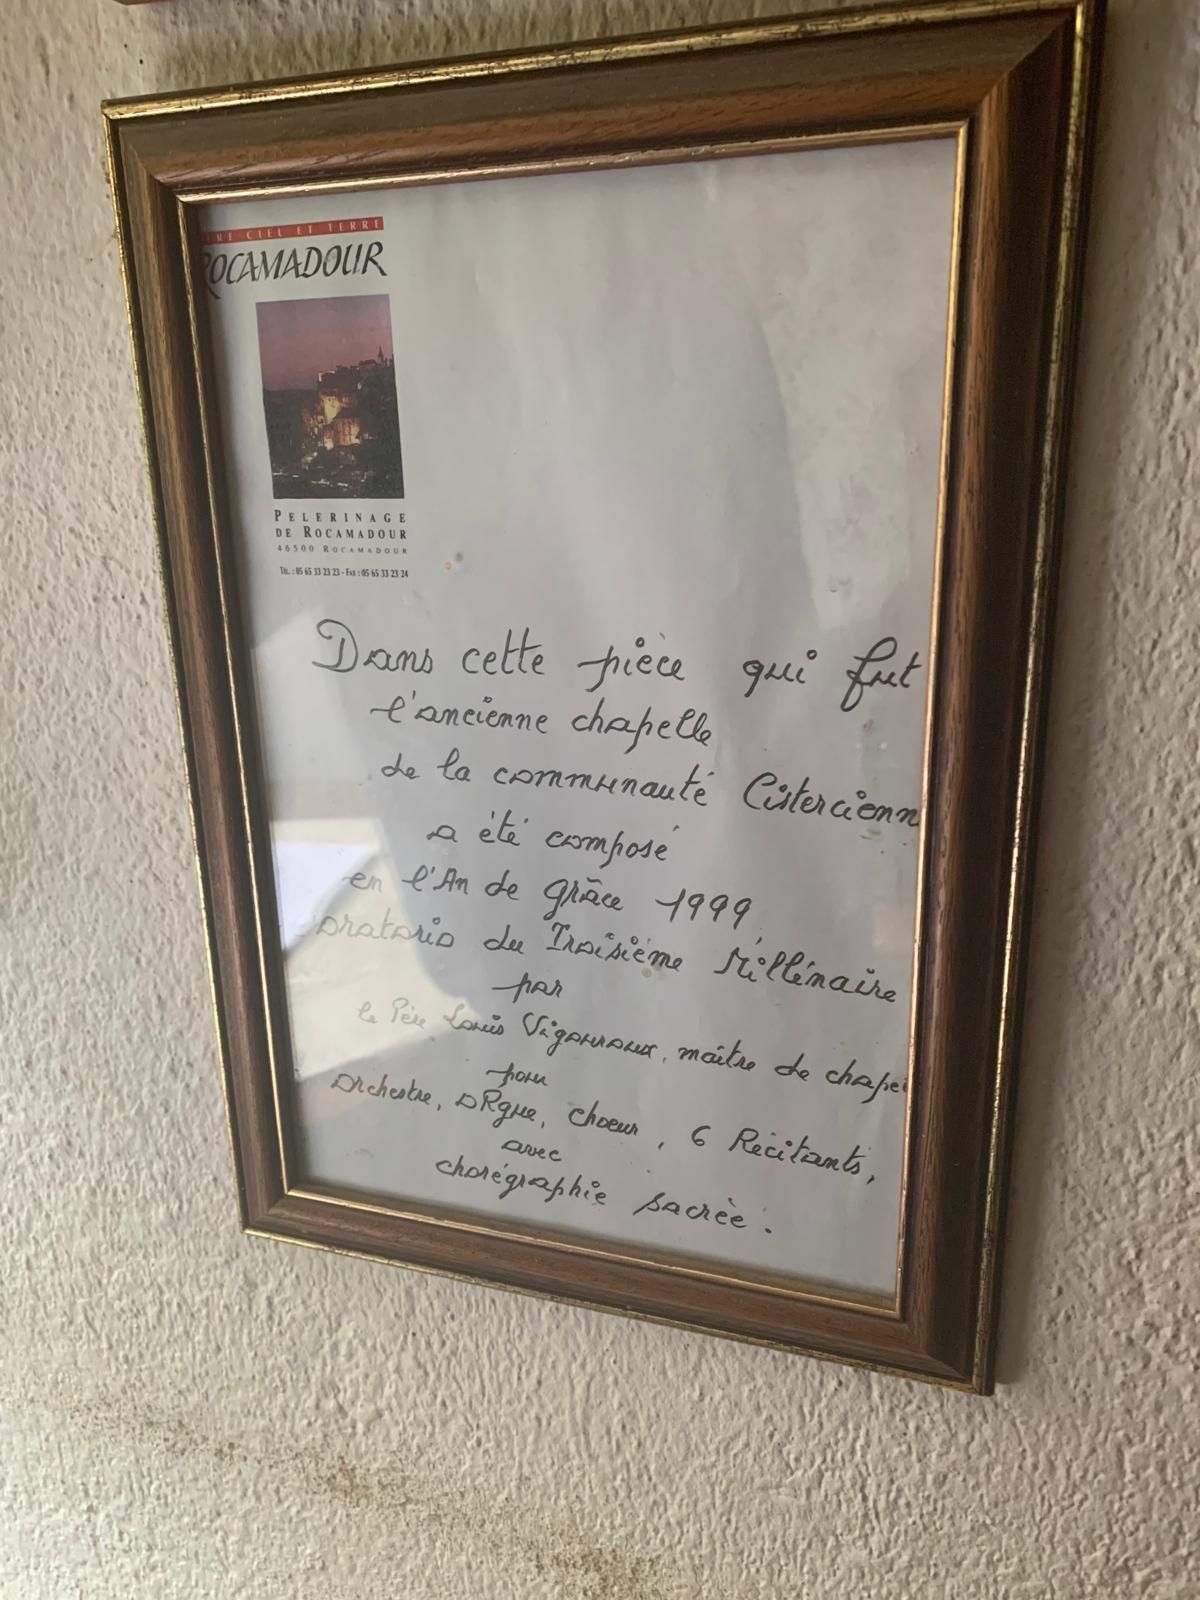 TRE CIEL ET TERRE
ROCAMADOUR
PELERINAGE
DE ROCAMADOUR
46500 ROCAMADOUR
TEL. : 05 65 33 23 23 - FAX : 05 65 33 23 24
Dans cette pièce qui fut
l'ancienne chapelle
de la communauté Cistercienn
a été composé
en l'An de grâce 1999
l'oratorio du Troisième Millénaire
par
le Père Louis Vigouroux, maître de chapel
pour
Orchestre, ORgue, Choeur, 6 Récitants,
avec
chorégraphie sacrée.